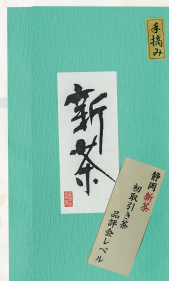 手摘み
新茶
静岡新茶
初取引き茶
品評会レベル